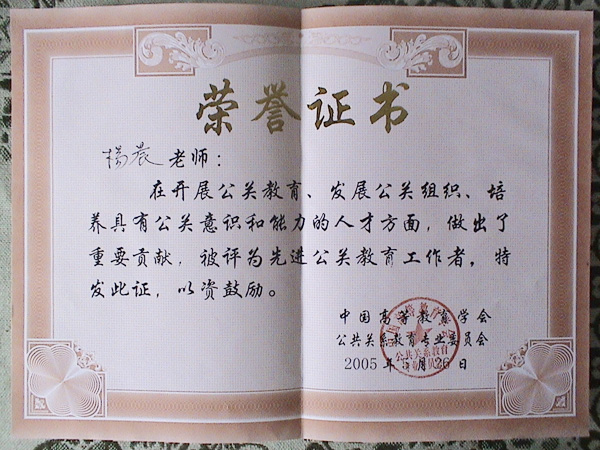 荣誉证书
杨晨老师：
在开展公关教育、发展公关组织、培
养具有公关意识和能力的人才方面，做出了
重要贡献，被评为先进公关教育工作者。特
发此证，以资鼓励。
中国高等教育学会
公共关系教育专业委员会
2005年5月26日